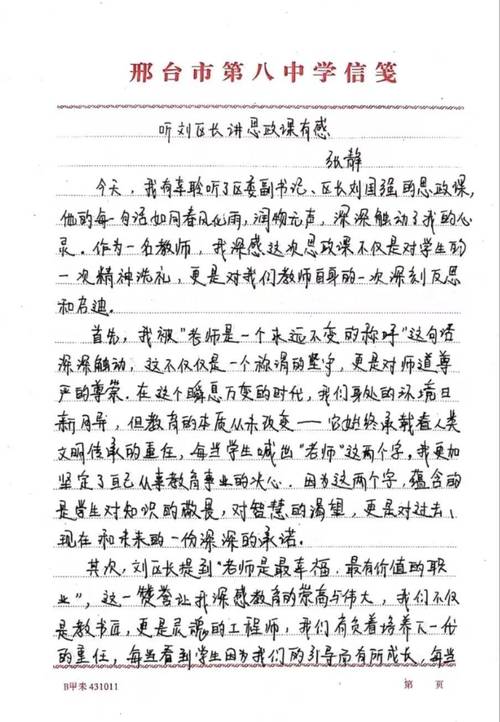 邢台市第八中学信笺
听刘区长讲思政课有感
张静
今天，我有幸聆听了区委副书记、区长刘国强的思政课，
他的每一句话如同春风化雨，润物无声，深深触动了我的心
灵。作为一名教师，我深感这次思政课不仅是对学生的
一次精神洗礼，更是对我们教师自身的一次深刻反思
和启迪.
首先，我被“老师是一个永远不变的称呼”这句话
深深触动，这不仅仅是一个称谓的坚守，更是对师道尊
严的尊崇。在这个瞬息万变的时代，我们身处的环境日
新月异，但教育的本质从未改变——它始终承载着人类
文明传承的重任，每当学生喊出“老师”这两个字，我更加
坚定了自己从事教育事业的决心. 因为这两个字，蕴含的
是学生对知识的敬畏，对智慧的渴望，更是对过去、
现在和未来的一份深深的承诺.
其次，刘区长提到“老师是最幸福、最有价值的职
业”，这一赞誉让我深感教育的崇高与伟大，我们不仅
是教书匠，更是灵魂的工程师，我们肩负着培养下一代
的重任，每当看到学生因为我们的引导而有所成长，每当
B甲未431011
第 页